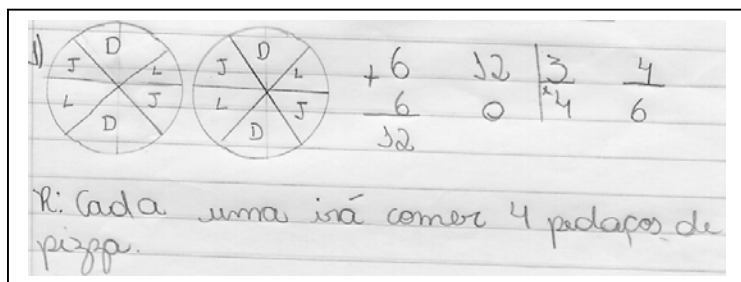 1)
D
J L
L J
D
D
J L
L J
D
+6 12 |3 4
6 0 4 6
12
R: Cada uma irá comer 4 pedaços de
pizza.